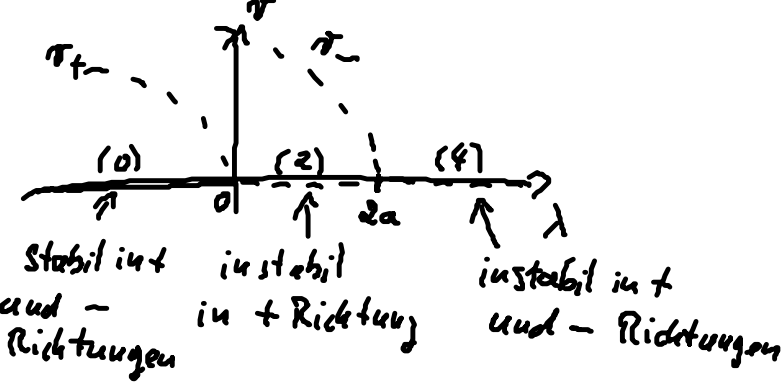 r
r+
r-
(0) (2) (4)
0 2a
stabil in +
und -
Richtungen
instabil
in + Richtung
instabil in +
und - Richtungen